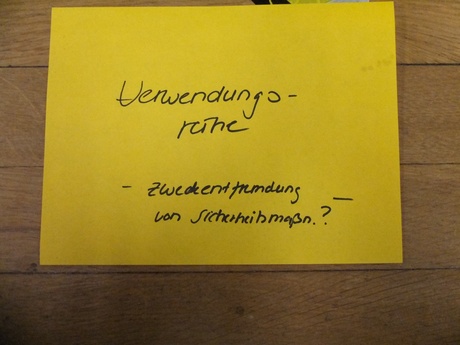 Verwendungs-
reihe
- Zweckentfremdung -
von Sicherheitsmaßn.?